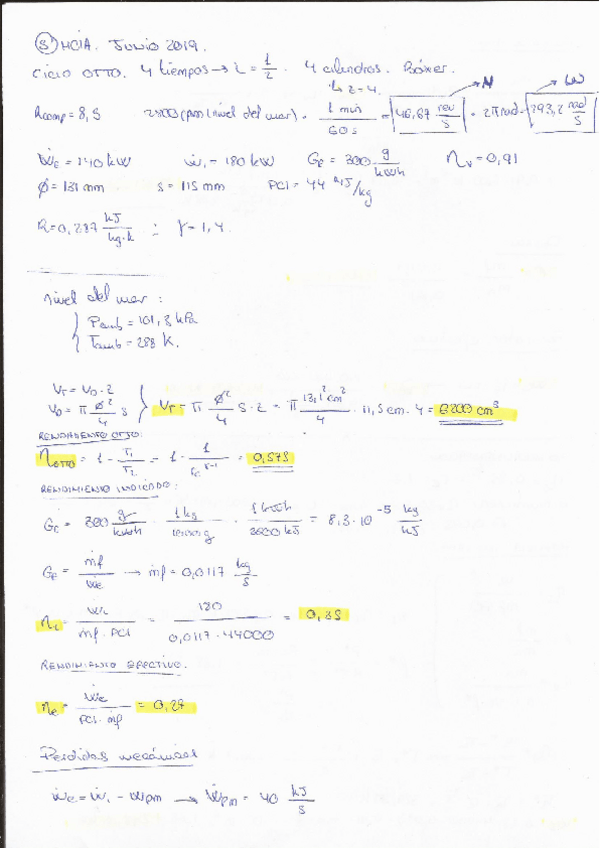 ⑤ MCIA. JUNIO 2019.
CICLO OTTO. 4 tiempos → i = 1/2 . 4 cilindros. Bóxer.
↳ z = 4.
Rcomp = 8,5 2800 rpm (nivel del mar) · 1 min / 60 s = 46,67 rev/s → N · 2π rad = 293,2 rad/s → ω
Ẇe = 140 kW Ẇi = 180 kW GE = 300 g/kWh ηv = 0,91
Ø = 131 mm s = 115 mm PCI = 44 MJ/kg
R = 0,287 kJ/kg·K ; γ = 1,4.
nivel del mar :
Pamb = 101,3 kPa
Tamb = 288 K.
VT = VD · z
VD = π Ø²/4 s } VT = π Ø²/4 s · z = π 13,1² cm²/4 · 11,5 cm · 4 = 6200 cm³
RENDIMIENTO OTTO:
ηOTTO = 1 - T1/T2 = 1 - 1/rc^γ-1 = 0,575
RENDIMIENTO INDICADO:
GE = 300 g/kWh · 1 kg/1000 g · 1 kWh/3600 kJ = 8,3 · 10^-5 kg/kJ
GE = ṁf/Ẇe → ṁf = 0,0117 kg/s
ηi = Ẇi/ṁf · PCI = 180/0,0117 · 44000 = 0,35
RENDIMIENTO EFECTIVO.
ηe = Ẇe/PCI · ṁf = 0,27
Perdidas mecánicas
Ẇe = Ẇi - Ẇpm → Ẇpm = 40 kJ/s